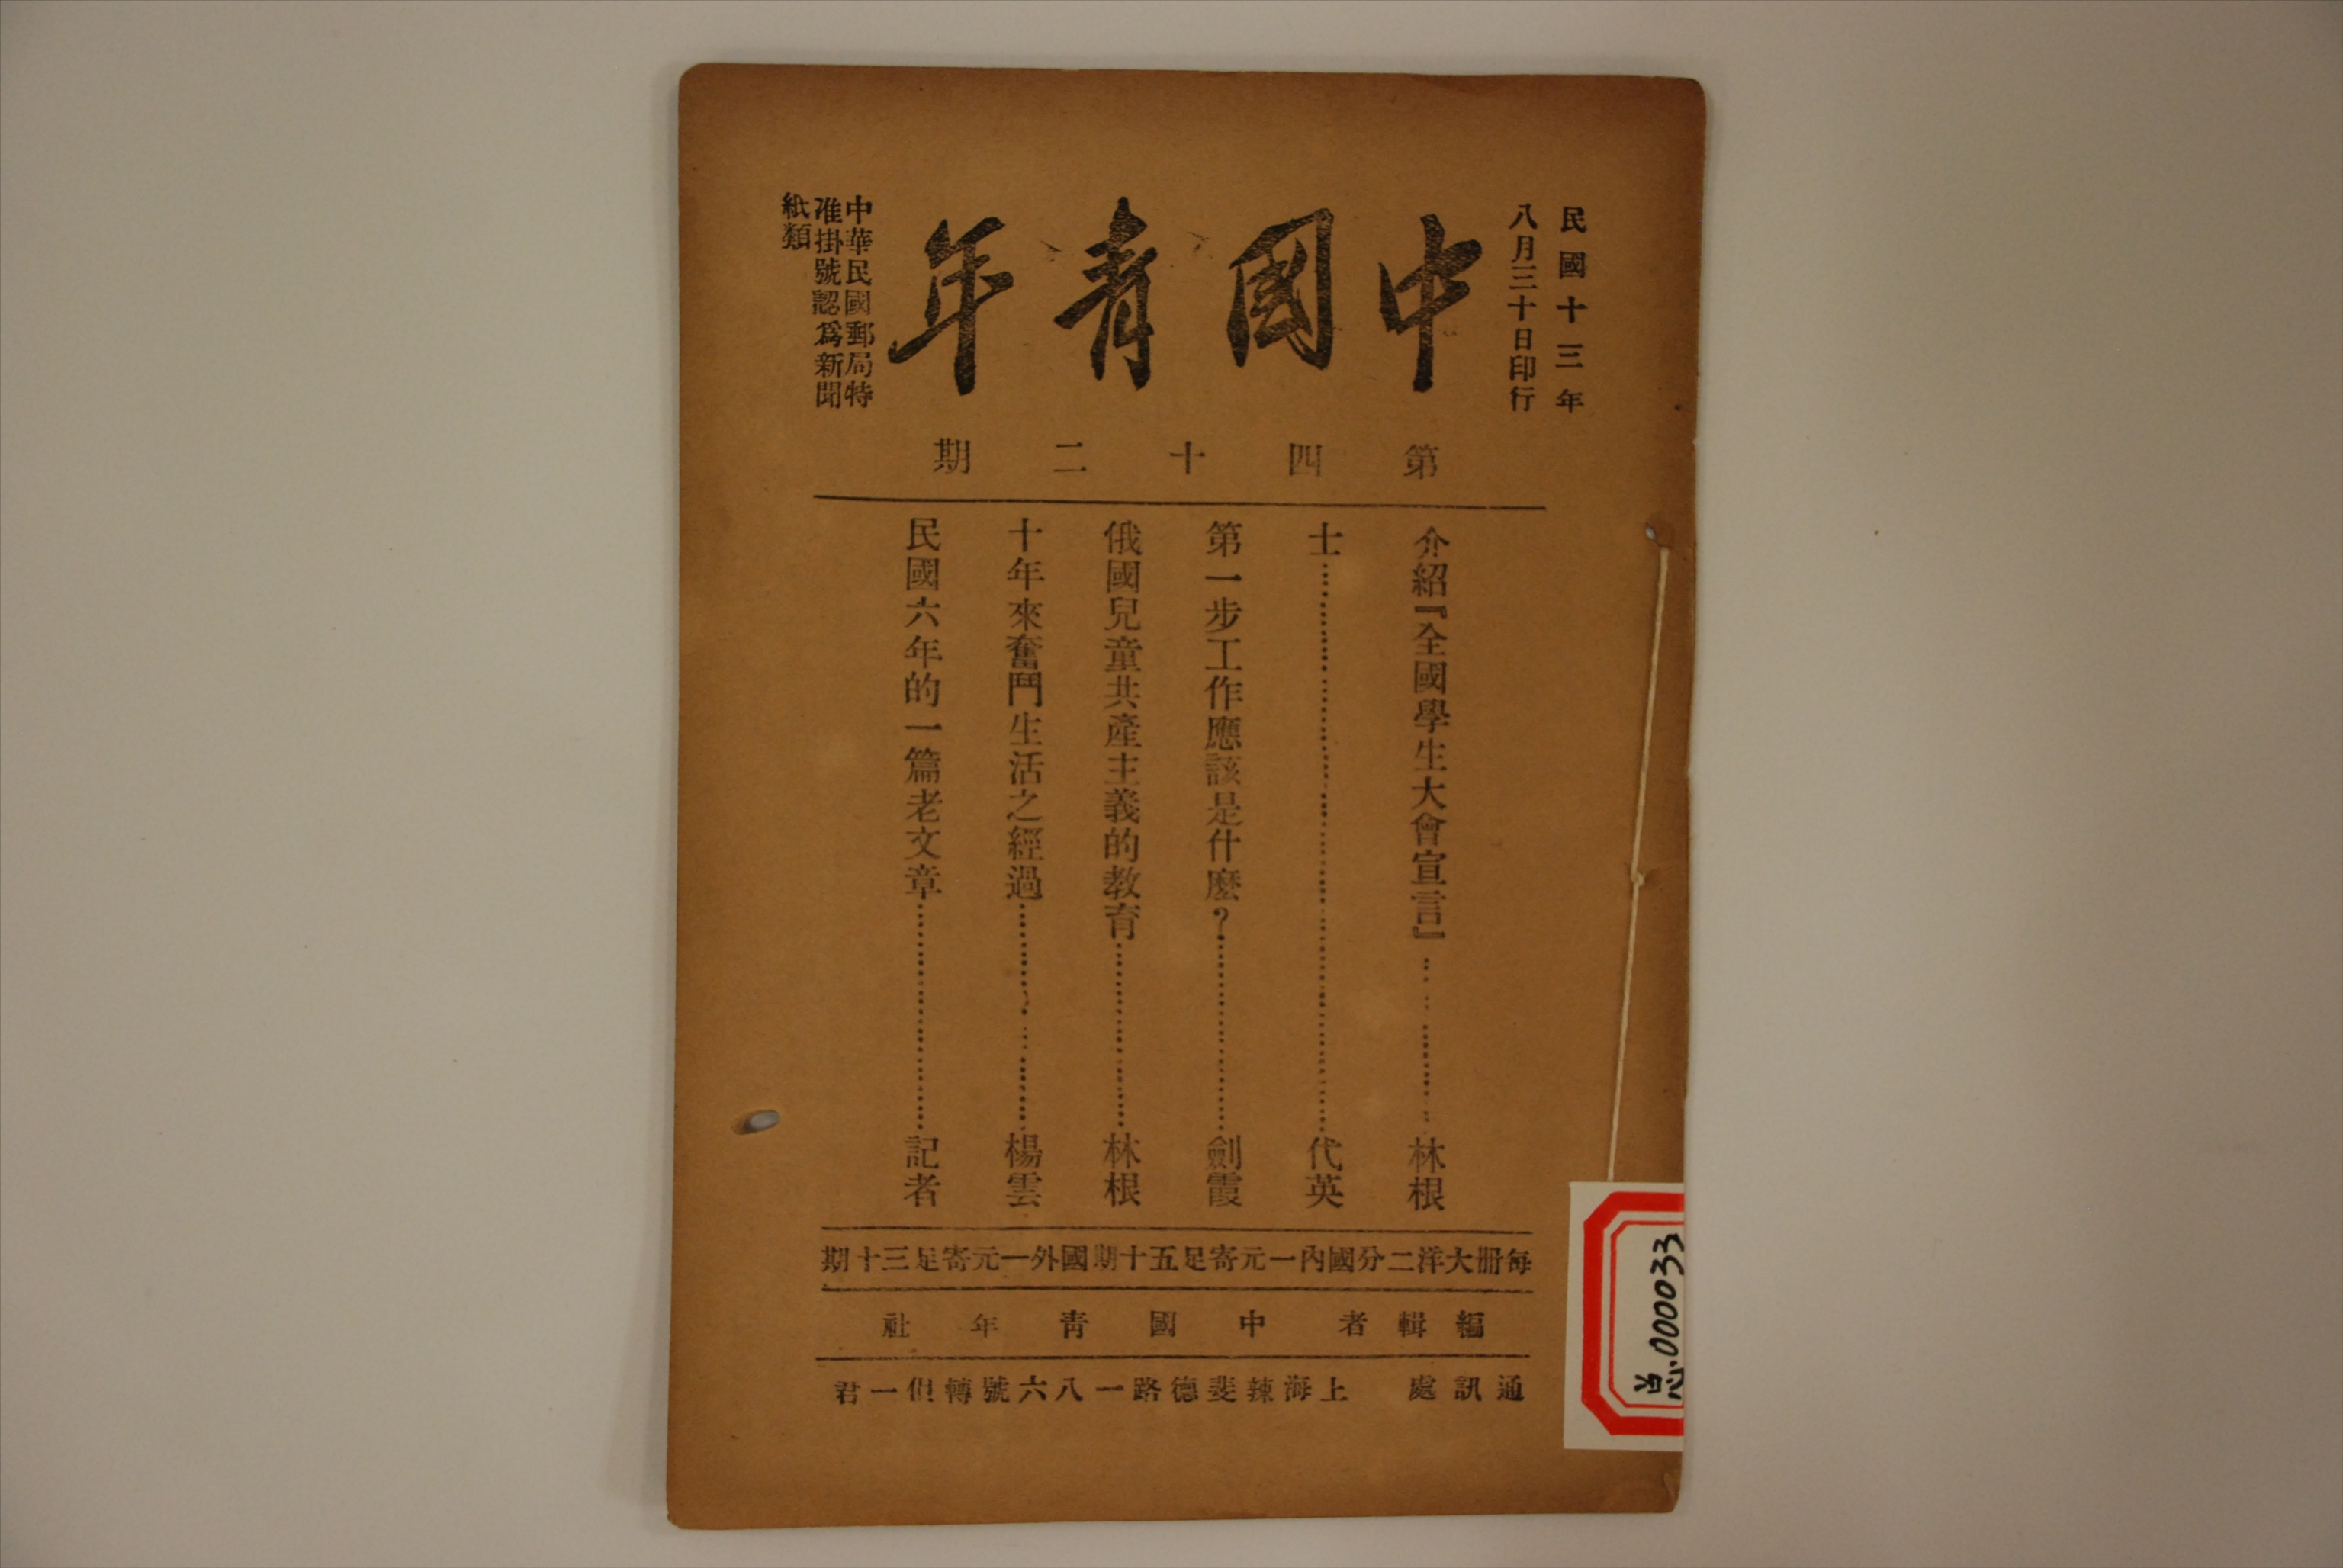 民國十三年
八月三十日印行
中國青年
中華民國郵局特
准掛號認爲新聞
紙類
第四十二期
介紹『全國學生大會宣言』………林根
士………代英
第一步工作應該是什麽？………劍霞
俄國兒童共產主義的教育………林根
十年來奮鬥生活之經過………楊雲
民國六年的一篇老文章………記者
每册大洋二分國內一元寄足五十期國外一元寄足三十期
編輯者 中國青年社
通訊處 上海辣斐德路一八六號轉但一君
总.000033